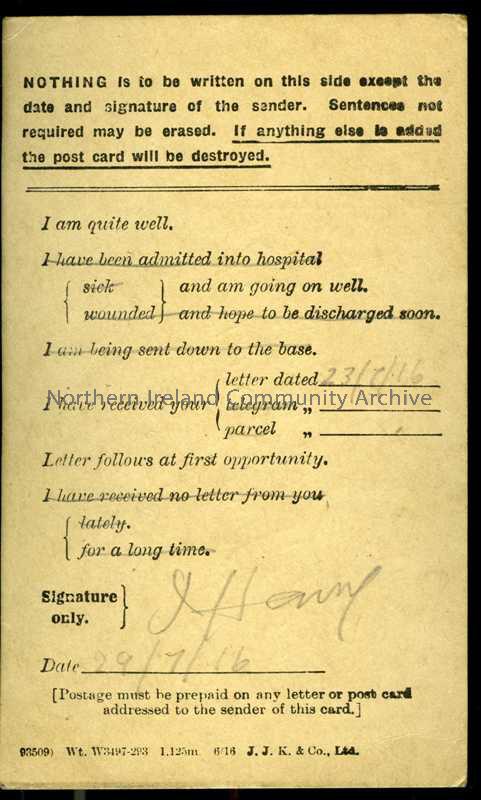 NOTHING is to be written on this side except the
date and signature of the sender. Sentences not
required may be erased. If anything else is added
the post card will be destroyed.
I am quite well.
I have been admitted into hospital
sick and am going on well.
wounded and hope to be discharged soon.
I am being sent down to the base.
letter dated 23/7/16
Northern Ireland Community Archive
I have received your telegram „
parcel „
Letter follows at first opportunity.
I have received no letter from you
lately.
for a long time.
Signature
only.
Date 29/7/16
[Postage must be prepaid on any letter or post card
addressed to the sender of this card.]
93509) Wt. W3497-293 1,125m. 6/16 J. J. K. & Co., Ltd.